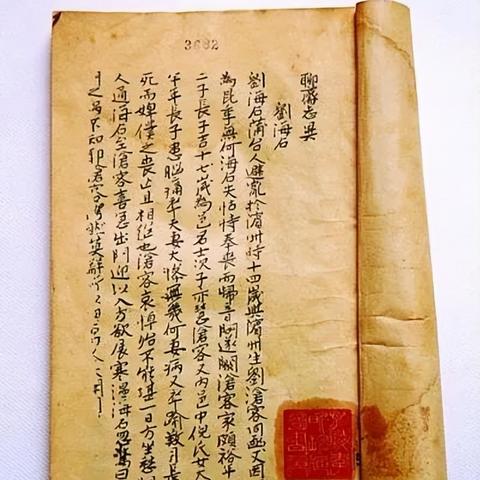 3682
聊齋志異
劉海石
劉海石蒲台人避亂於濱州時十四歲與濱州生劉滄客同函丈因
為昆季無何海石失怙恃奉喪而歸音問遂闕滄客家頗裕年
二子長子吉十七歲為邑名士次子亦慧滄客又內邑中倪氏女大
半年長子患腦痛卒夫妻大慘無幾何妻病又卒逾數月長
死而婢僕之喪亡且相繼也滄客哀悼殆不能堪一日方坐愁
人通海石至滄客喜急出門迎以入方欲展寒溫海石忽驚曰
之禍不知耶滄客愕然莫解